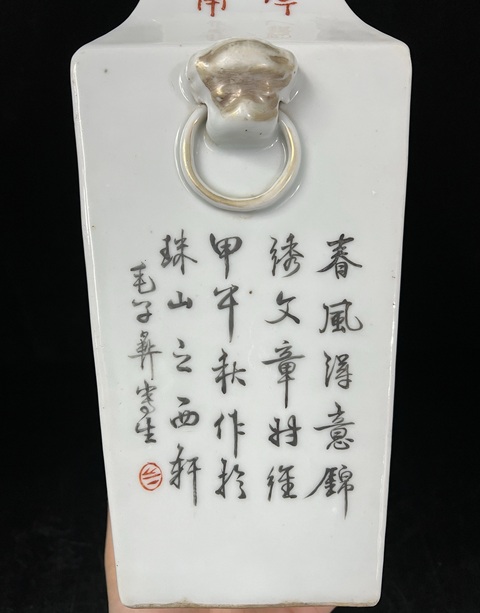 春風得意錦
綉文章時維
甲午秋作於
珠山之西軒
毛子彝寫生